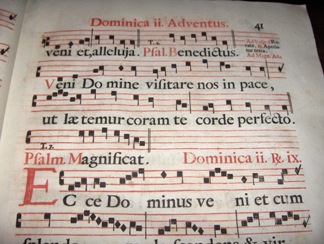 Dominica ii. Adventus. 41
veni et, alleluja. Psal. Benedictus.
Veni Domine visitare nos in pace,
ut lætemur coram te corde perfecto.
Psalm. Magnificat. Dominica ii. R. ix.
ECce Dominus veni et cum